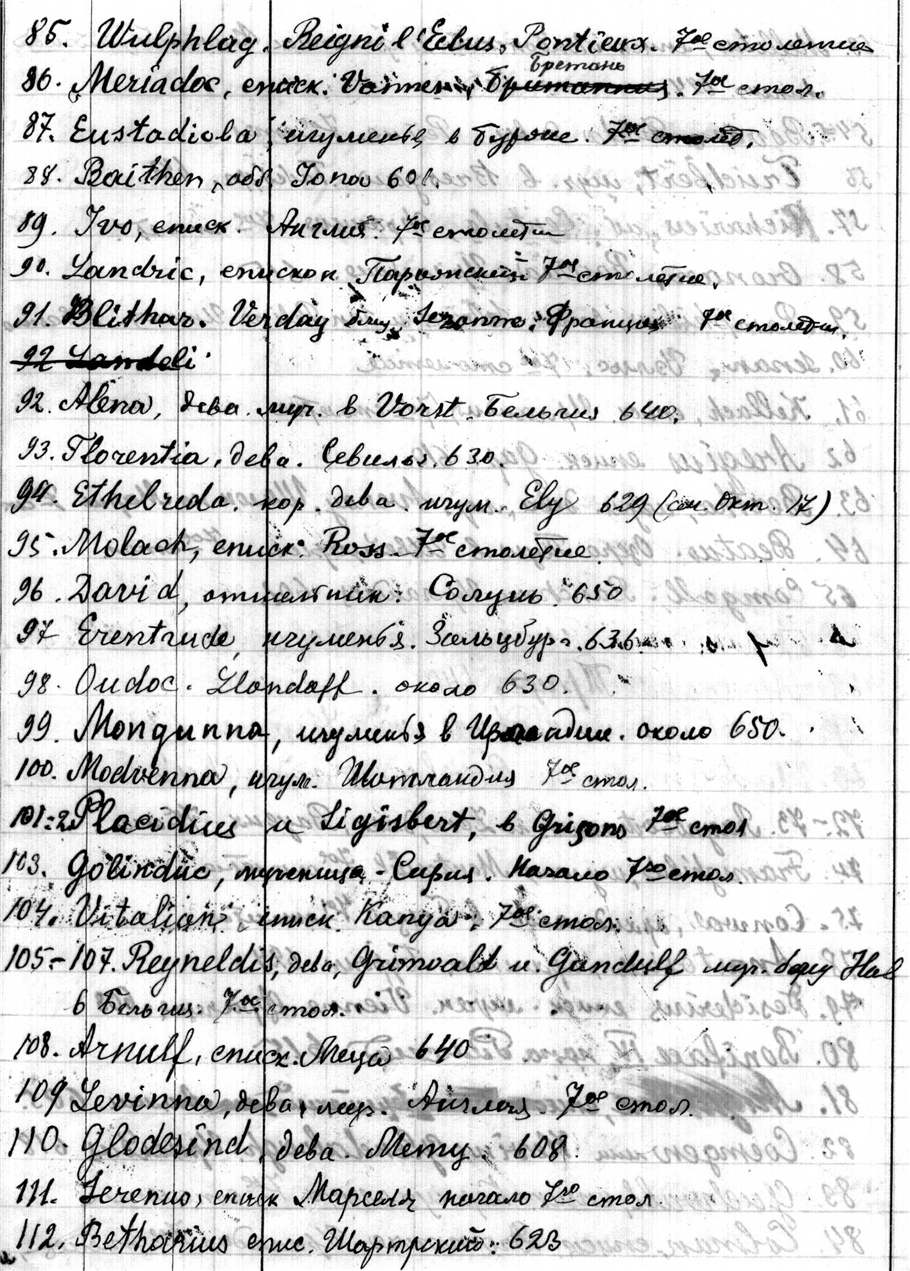 85. Wulphlag. Reigni l'Eclus, Pontieux. 7ое столетие
86. Meriadoc, еписк. Vannes, Бретань Британния. 7ое стол.
87. Eustadiola игуменья в Бурже. 7ое столет.
88. Baithen, авв Iona 601.
89. Ivo, еписк. Англия. 7ое столетия
90. Landric, епископ Парижский 7ое столетие.
91. Blithar. Verday близ Sezanne. Франция 7ое столетия.
92 Landeli
92. Alena, дева. муч. в Vorst. Бельгия 640.
93. Florentia, дева. Севилья. 630.
94. Ethelreda. кор. дева. игум. Ely 629 (см. Окт. 17)
95. Moloch, еписк. Ross 7ое столетие
96. David, отшельник. Солунь. 650
97 Erentrude, игуменья. Зальцбург. 636
98. Oudoc. Llandaff. около 630.
99. Mongunna, игуменья в Ирландии. около 650.
100. Modvenna, игум. Шотландия 7ое стол.
101-2. Placidius и Sigisbert, в Grisons 7ое стол
103. Golinduc, мученица - Сирия. Начало 7го стол.
104. Vitalian еписк. Капуа. 7ое стол.
105-107. Reyneldis, дева, Grimoalt и Gundulf муч. близ Hal
в Бельгии. 7ое стол.
108. Arnulf, еписк. Меца 640
109 Levinna, дева, муч. Англия. 7ое стол.
110. Glodesind, дева. Метц. 608.
111. Serenus, еписк Марселя начало 7го стол
112. Betharius епис. Шартрский. 623